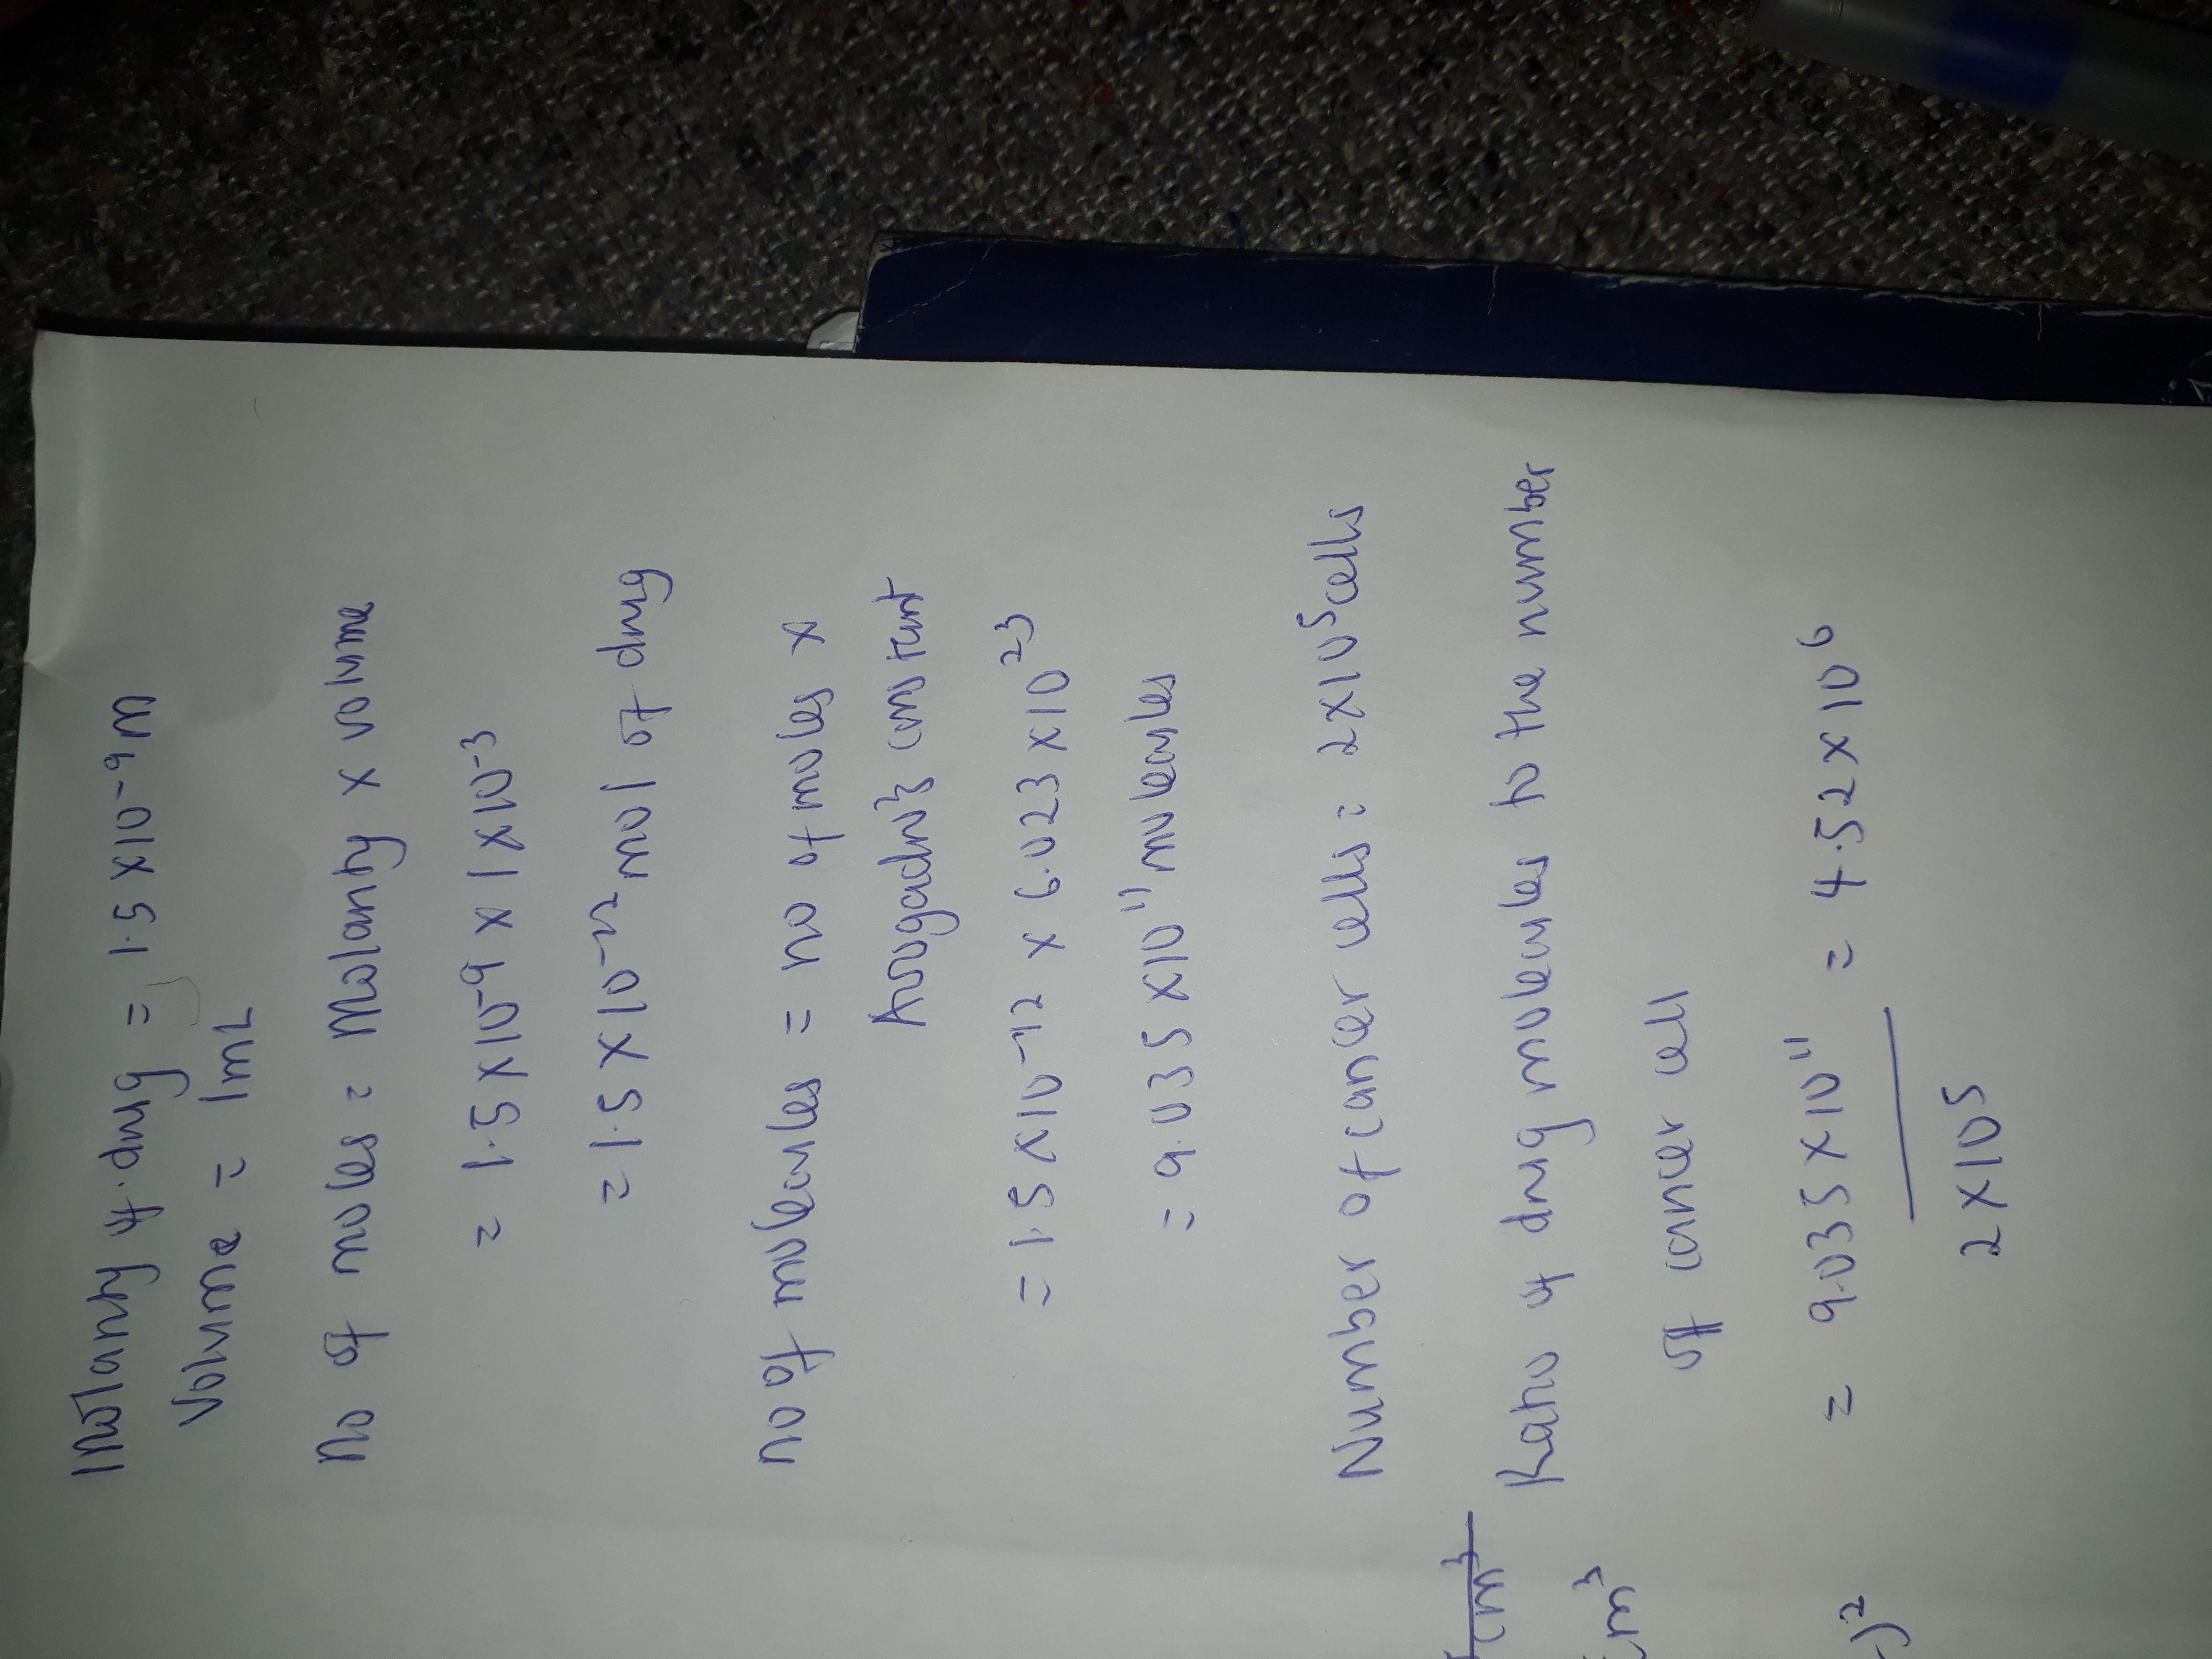 Molarity of drug = 1.5 x10⁻⁹M
Volume = 1mL
No of moles = Molarity x volume
= 1.5 x10⁻⁹ x 1x10⁻³
= 1.5 x10⁻¹² mol of drug
No of molecules = no of moles x
Avogadro's constant
= 1.5 x10⁻¹² x 6.023 x10²³
= 9.035 x10¹¹ molecules
Number of cancer cells = 2x10⁵ cells
Ratio of drug molecules to the number
of cancer cell
= 9.035 x10¹¹ = 4.52 x10⁶
2 x10⁵
cm³
cm³
)²